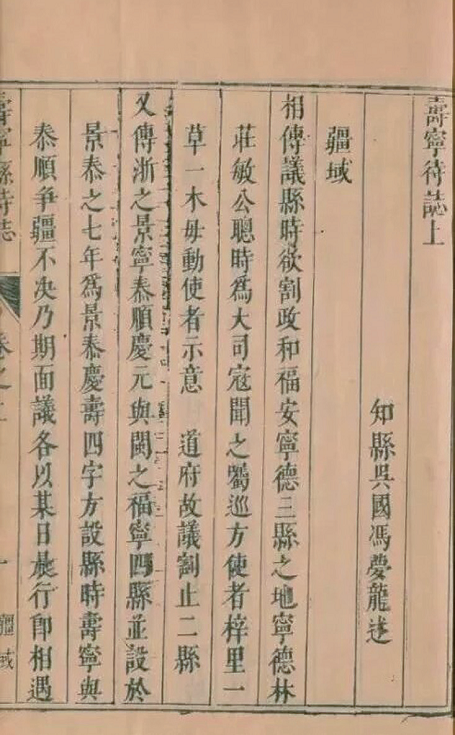 壽寧待誌上
知縣吳國馮夢龍述
疆域
相傳議縣時欲割政和福安寧德三縣之地寧德林
莊敏公聰時爲大司寇聞之囑巡方使者梓里一
草一木毋動使者示意 道府故議割止二縣
又傳浙之景寧泰順慶元與閩之福寧四縣並設於
景泰之七年爲景泰慶壽四字方設縣時壽寧與
泰順爭疆不決乃期面議各以某日晨行卽相遇
壽寧縣待誌 卷之上 一 疆域